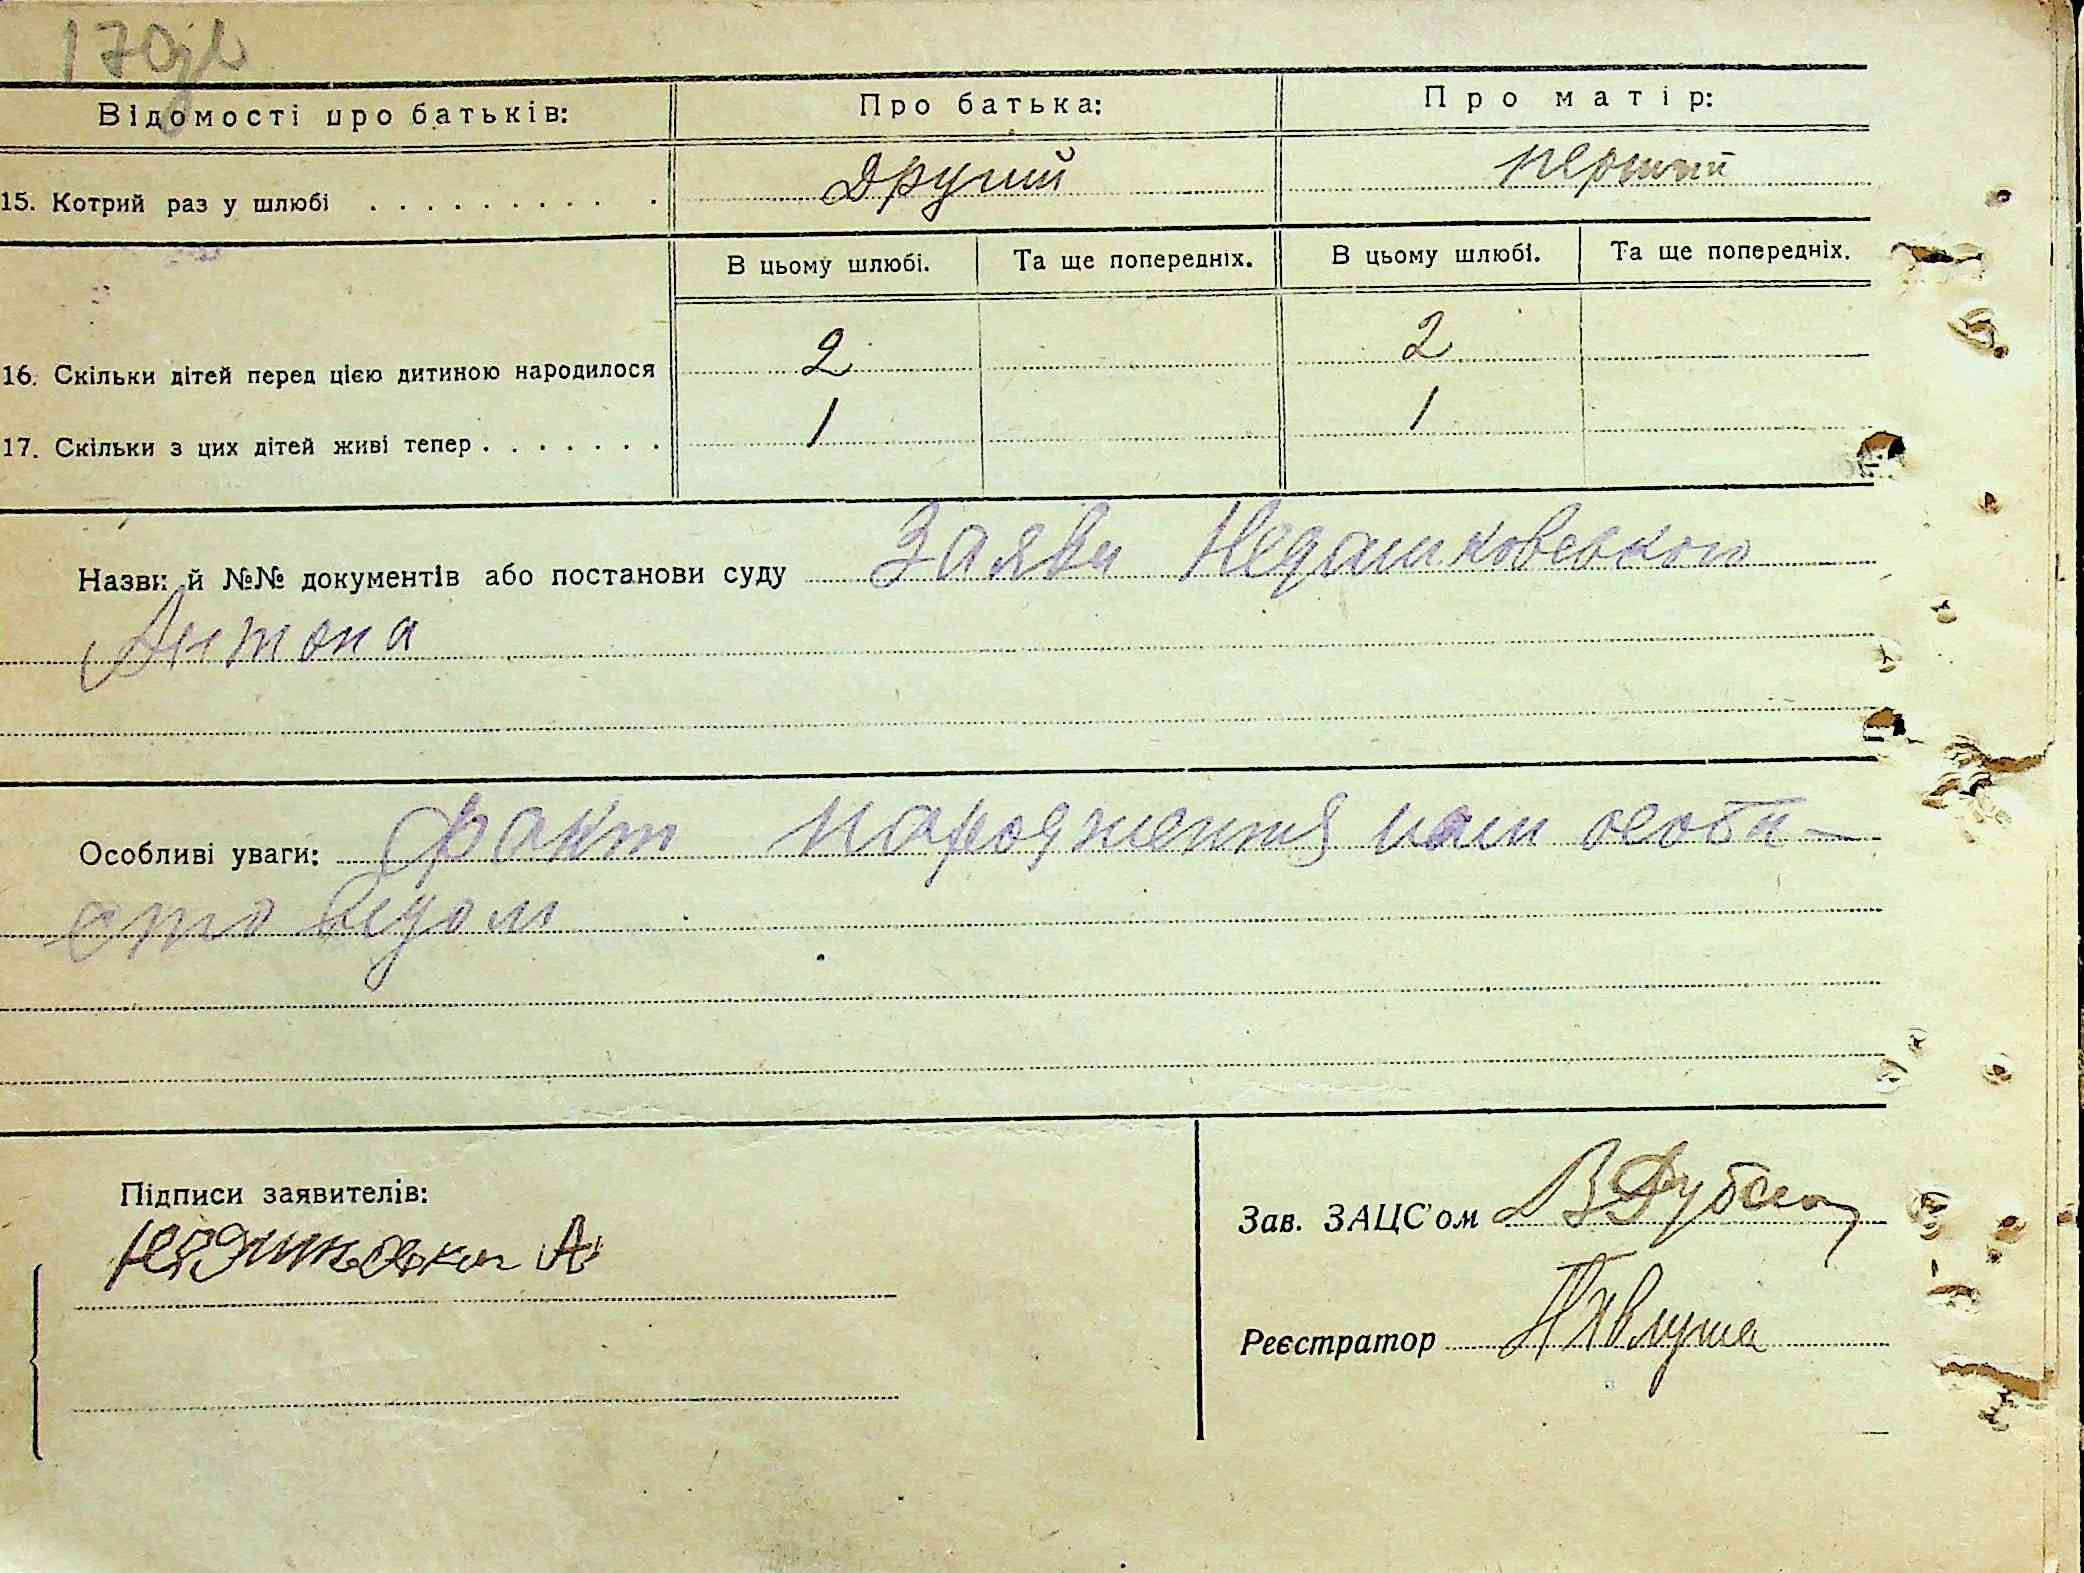 170зв
Відомості про батьків: Про батька: Про матір:
15. Котрий раз у шлюбі . . . . . . . . . . . Другий перший
В цьому шлюбі. Та ще попередніх. В цьому шлюбі. Та ще попередніх.
16. Скільки дітей перед цією дитиною народилося 2 2
17. Скільки з цих дітей живі тепер . . . . . . . 1 1
Назви й №№ документів або постанови суду Заява Недашковського
Антона
Особливі уваги: факт народження нам особи-
сто відом
Підписи заявителів:
А
Зав. ЗАЦС'ом В Дубсь
Реєстратор Павлуша